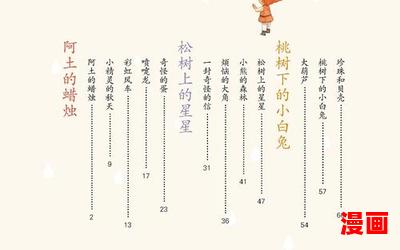 阿土的蜡烛
阿土的蜡烛 2
小精灵的秋天 9
彩虹风车 13
喷嚏龙 17
奇怪的蛋 23
松树上的星星
一封奇怪的信 31
烦恼的大角 36
小熊的森林 41
松树上的星星 47
桃树下的小白兔
大葫芦 54
桃树下的小白兔 57
珍珠和贝壳
漫画